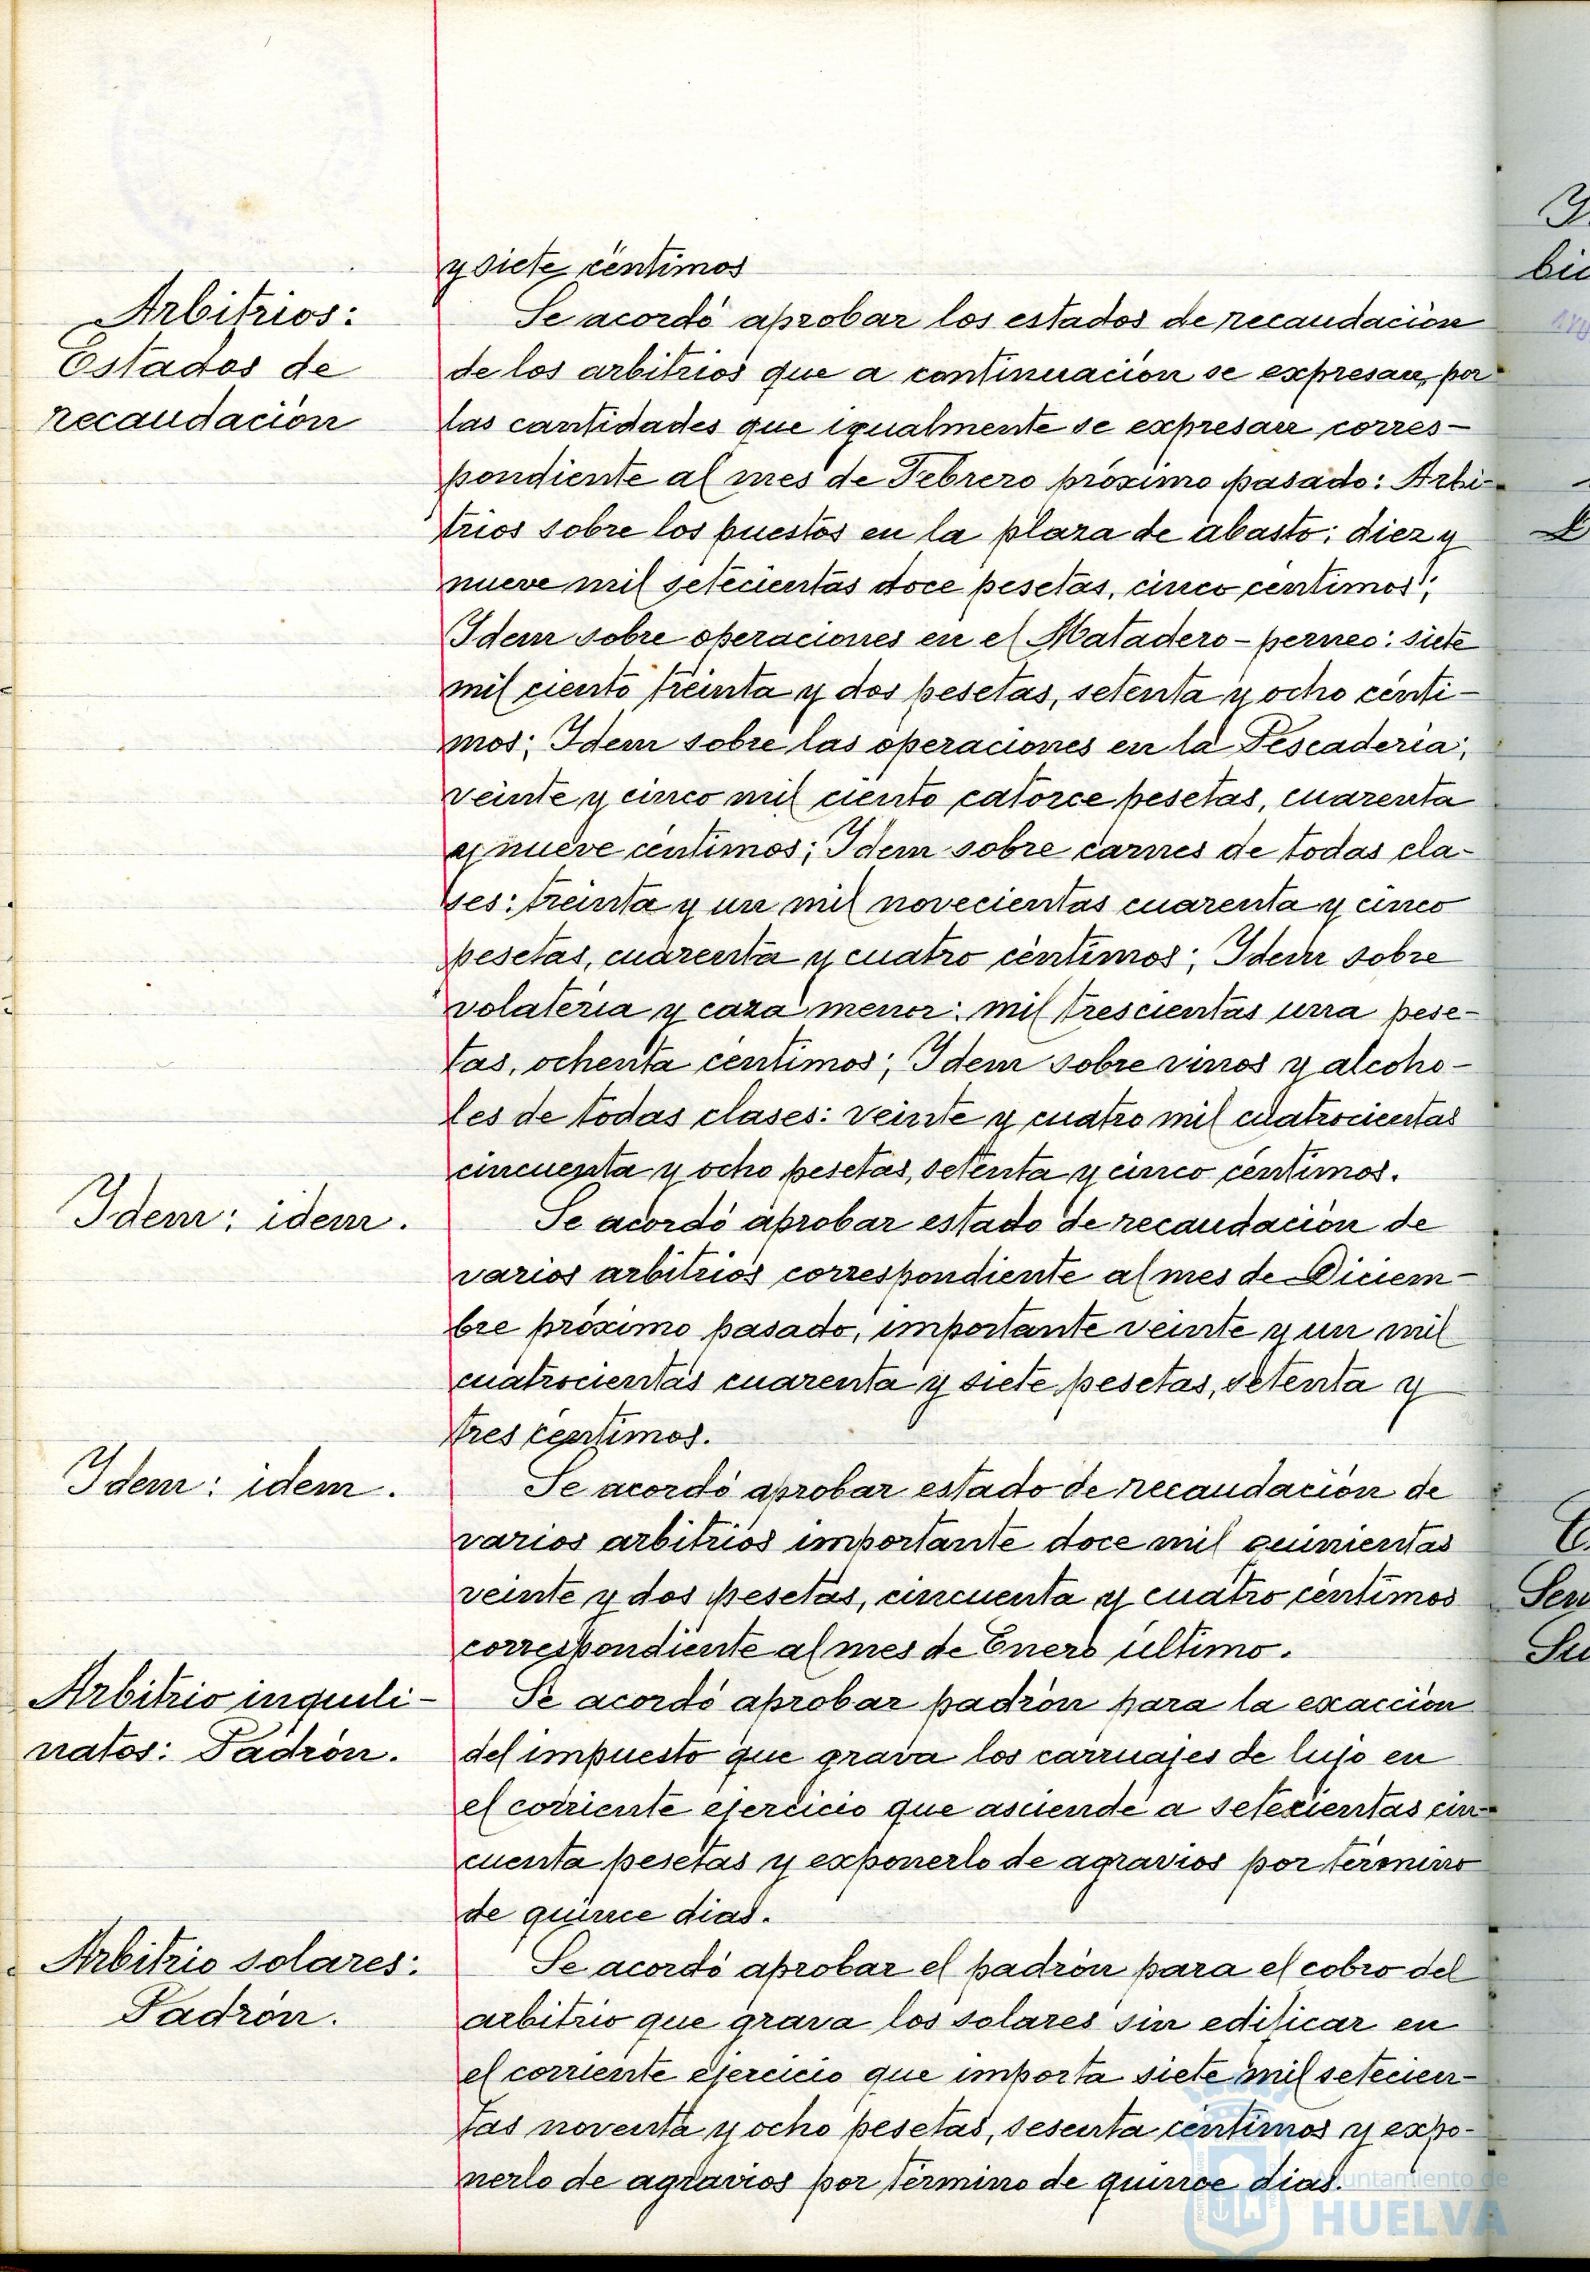 y siete céntimos
Arbitrios:
Estados de
recaudación
Se acordó aprobar los estados de recaudación
de los arbitrios que a continuación se expresan, por
las cantidades que igualmente se expresan corres-
pondiente al mes de Febrero próximo pasado: Arbi-
trios sobre los puestos en la plaza de abasto: diez y
nueve mil setecientas doce pesetas, cinco centimos;
Idem sobre operaciones en el Matadero-perneo: siete
mil ciento treinta y dos pesetas, setenta y ocho cénti-
mos; Idem sobre las operaciones en la Pescaderia;
veinte y cinco mil ciento catorce pesetas, cuarenta
y nueve centimos; Idem sobre carnes de todas cla-
ses: treinta y un mil novecientas cuarenta y cinco
pesetas, cuarenta y cuatro céntimos; Idem sobre
volateria y caza menor: mil trescientas una pese-
tas, ochenta centimos; Idem sobre vinos y alcoho-
les de todas clases: veinte y cuatro mil cuatrocientas
cincuenta y ocho pesetas, setenta y cinco céntimos.
Idem: idem.
Se acordó aprobar estado de recaudación de
varios arbitrios correspondiente al mes de Diciem-
bre próximo pasado, importante veinte y un mil
cuatrocientas cuarenta y siete pesetas, setenta y
tres centimos.
Idem: idem.
Se acordó aprobar estado de recaudación de
varios arbitrios importante doce mil quinientas
veinte y dos pesetas, cincuenta y cuatro céntimos
correspondiente al mes de Enero último.
Arbitrio inquili-
natos: Padrón.
Se acordó aprobar padrón para la exacción
del impuesto que grava los carruajes de lujo en
el corriente ejercicio que asciende a setecientas cin-
cuenta pesetas y exponerlo de agravios por término
de quince dias.
Arbitrio solares:
Padrón.
Se acordó aprobar el padrón para el cobro del
arbitrio que grava los solares sin edificar en
el corriente ejercicio que importa siete mil setecien-
tas noventa y ocho pesetas, sesenta céntimos y expo-
nerlo de agravios por término de quince dias.
Ayuntamiento de
HUELVA